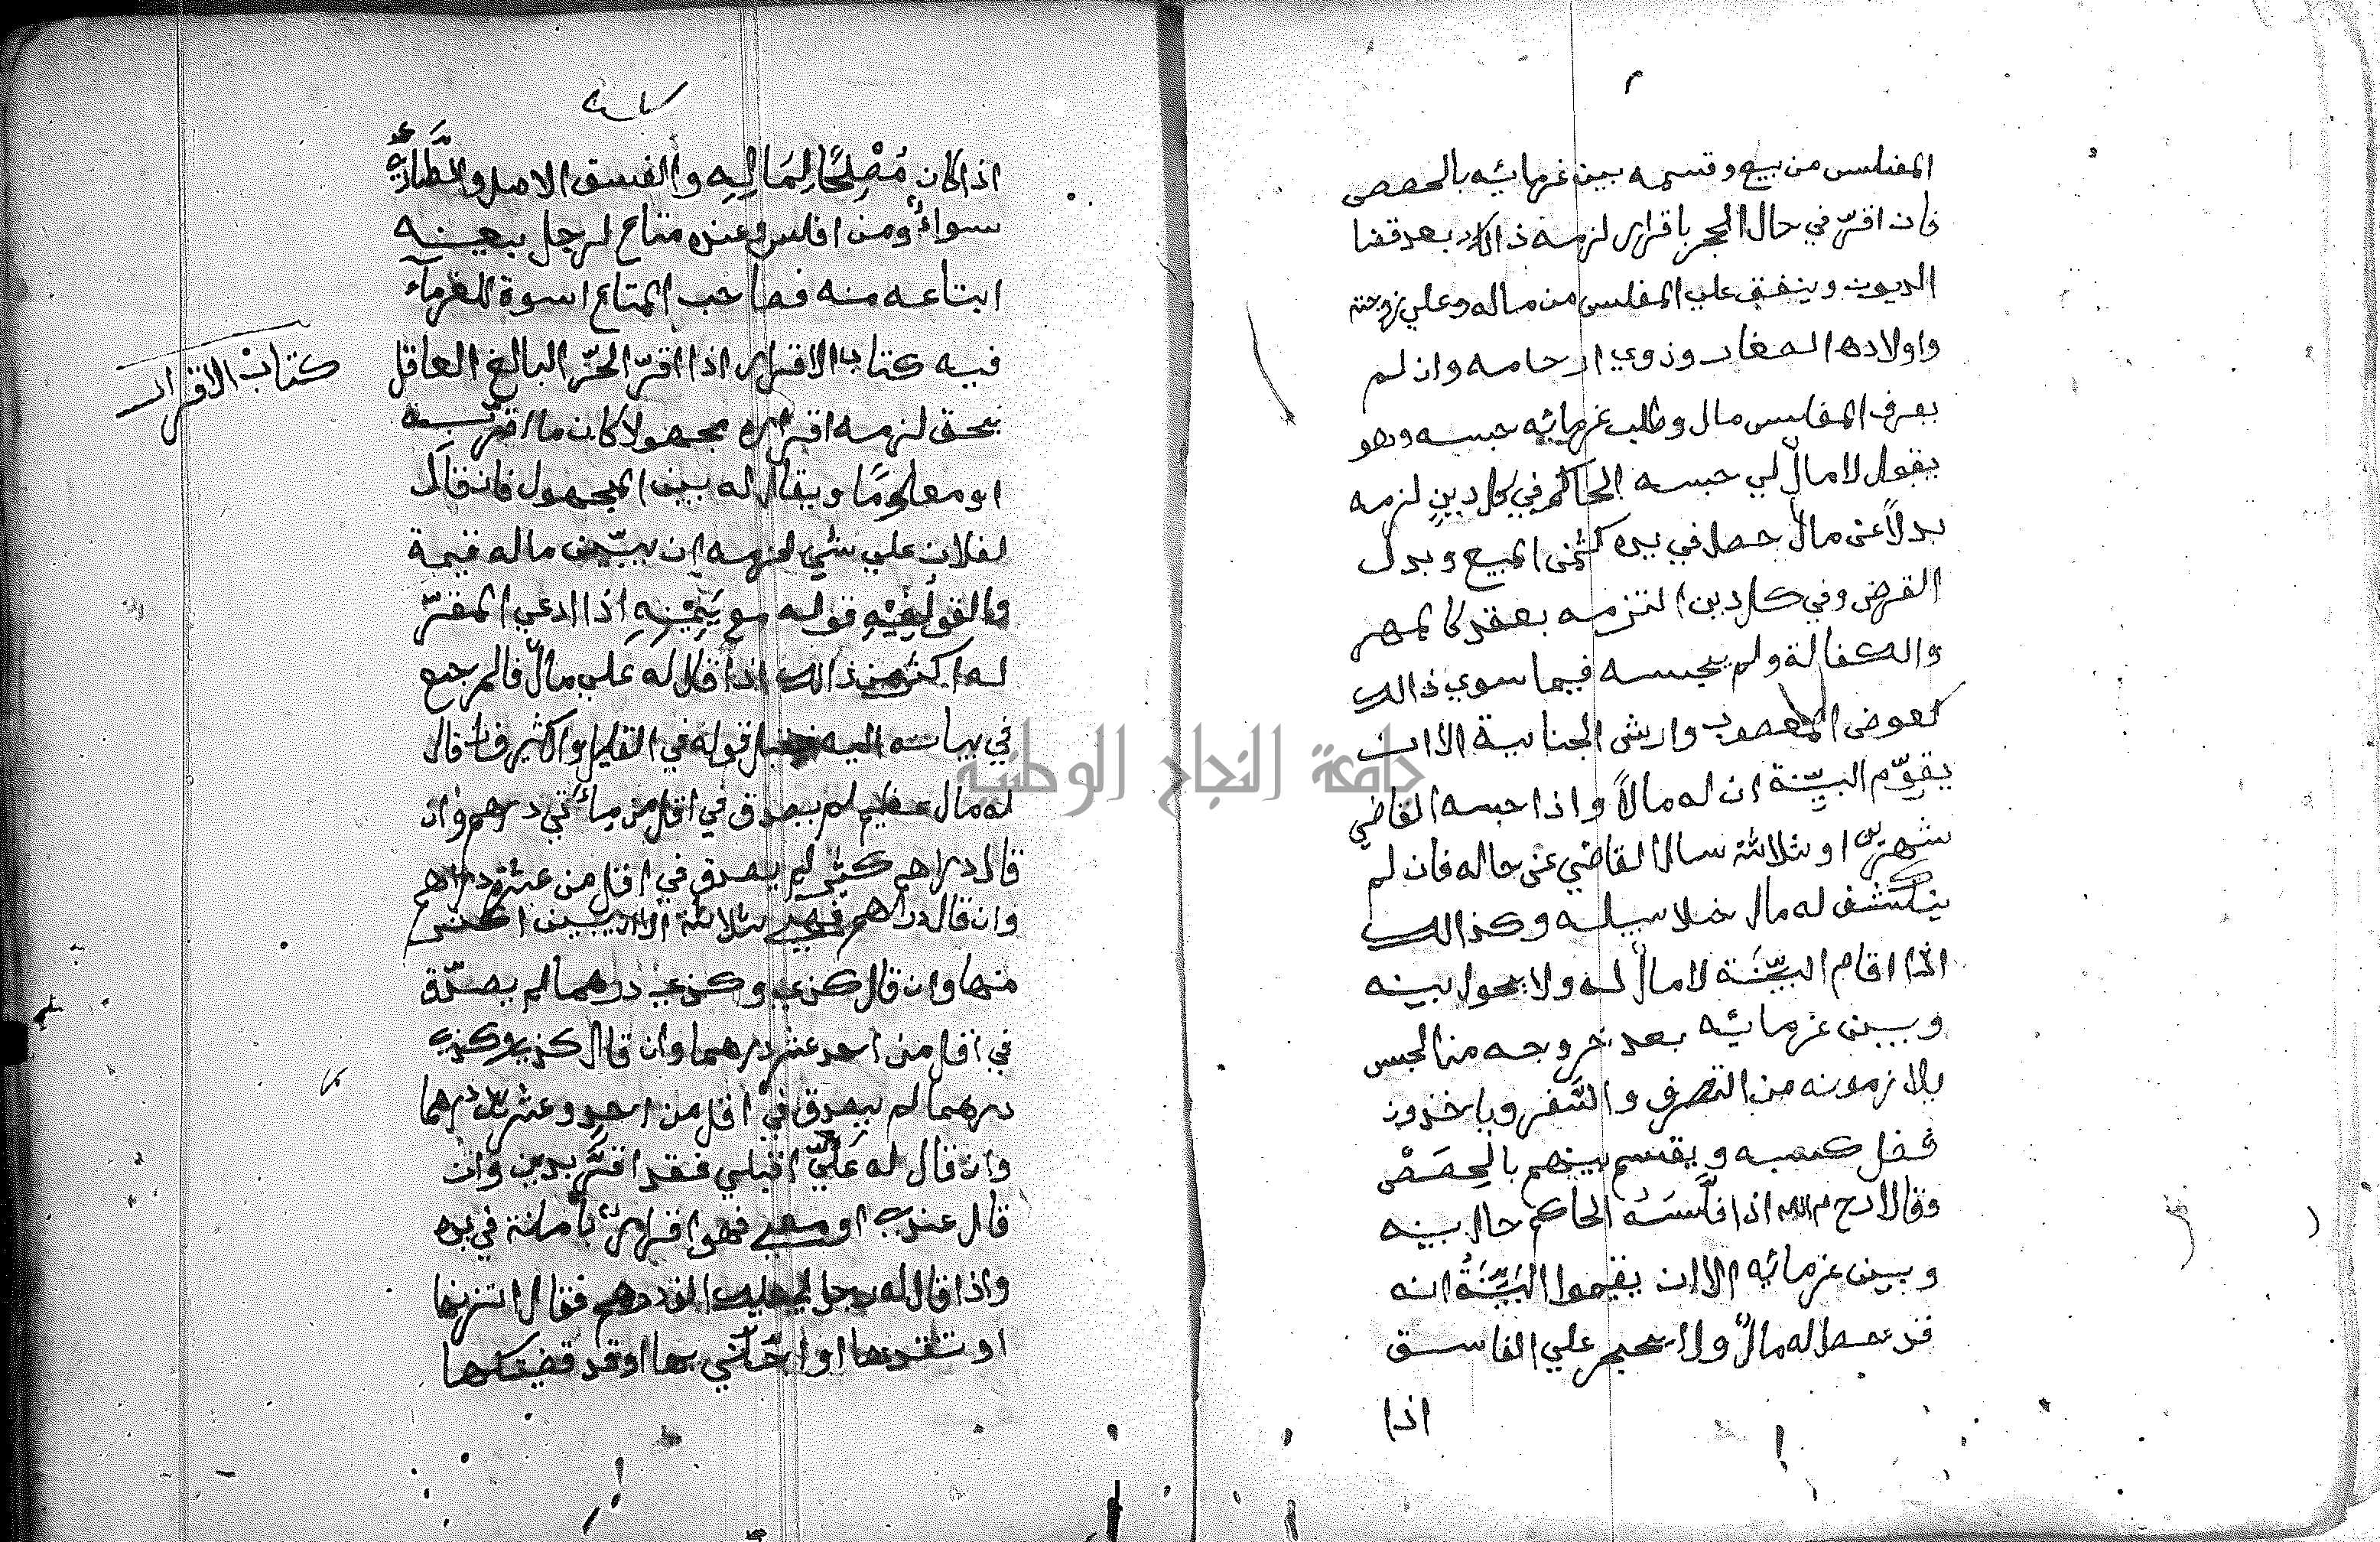 المفلس من بيع وقسمه بين غرمائيه بالحصص
فان اقرّ في حال الحجر باقرار لزمه ذالك بعد قضا
الديون وينفق علي المفلس من ماله وعلي زوجته
واولاده الصغار وذوي ارحامه وان لم
يعرف المفلس مال وطلب غرمائيه حبسه وهو
يقول لا مال لي حبسه الحاكم في كل دين لزمه
بدلاً عن مال حصل في يده كثمن المبيع وبدل
القرض وفي كل دين التزمه بعقد كالمهر
والكفالة ولم يحبسه فيما سوي ذالك
كعوض المغصوب وارش الجناية الا ان
يقوّم البيّنة ان له مالاً واذا حبسه القاضي
شهرين او ثلاثة سال القاضي عن حاله فان لم
ينكشف له مال خلا سبيله وكذالك
اذا اقام البيّنة لا مال له ولا يحول بينه
وبين غرمائيه بعد خروجه من الحبس
يلازمونه من التصرف والسَّفر وياخذون
فضل كسبه ويقسم بينهم بالحِصَصْ
وقالا رحمهم الله اذا فلَّسَه الحاكم حال بينه
وبين غرمائيه الا ان يقيموا البَيِّنَةُ انه
قد حصل له مالٌ ولا يحجر علي الفاسق
اذا
اذا كان مُصْلِحًا لِمَالِهِ والفسق الاصل والطَّارِئُ
سواءٌ ومن افلس وعنده متاع لرجل بعينه
ابتاعه منه فصاحب المتاع اسوة للغرمآء
فيه كتاب الاقرار اذا اقرّ الحُرّ البالغ العاقل
بحق لزمه اقراره مجهولا كان ما اقرّ به
او معلومًا ويقال له بين المجهول فان قال
لفلان علي شي لزمه ان يبيّن ماله قيمة
والقول فيه قوله مع يَمِيْنِهِ اذا ادعي المقرّ
له اكثر من ذالك اذا قال له علي مالٌ فالمرجع
في بيانه اليه ويقبل قوله في القليل والكثير فان قال
له مال عظيم لم يصدق في اقل من مِائَتي درهم وان
قال دراهم كثير لم يصدق في اقل من عشرة دراهم
وان قال دراهم فهي ثلاثة الا ان يبين اكثر
منها وان قال كذي وكذي درهما لم يصدّق
في اقل من احد عشر درهما وان قال كذي وكذي
درهما لم يصدق في اقل من احد وعشرين درهما
وان قال له عَلَيَّ او قبلي فقد اقرَّ بدين وان
قال عندي او معي فهو اقرارٌ بأمانة في يده
واذا قال له رجل لي عليك الف درهم فقال اتزنها
او تنقدها او اجّلني بها او قد قضيتكها
كتاب الاقرار
جامعة النجاح الوطنية